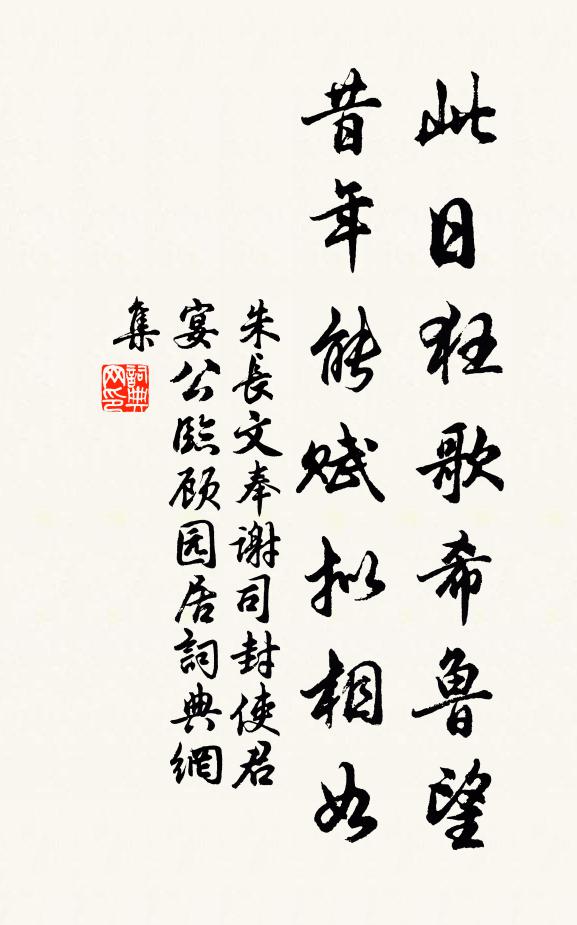 此日狂歌希鲁望
昔年能赋拟相如
朱長文奉謝司封使君
宴公臨顾园居詞典網
集
詞典网印